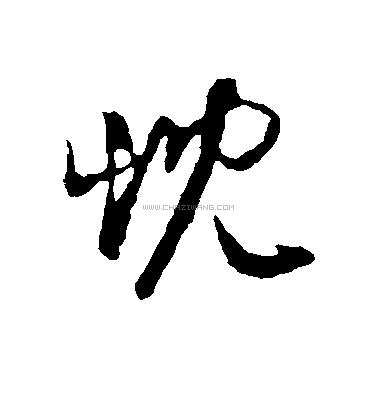 忱
WWW.CHAZIWANG.COM